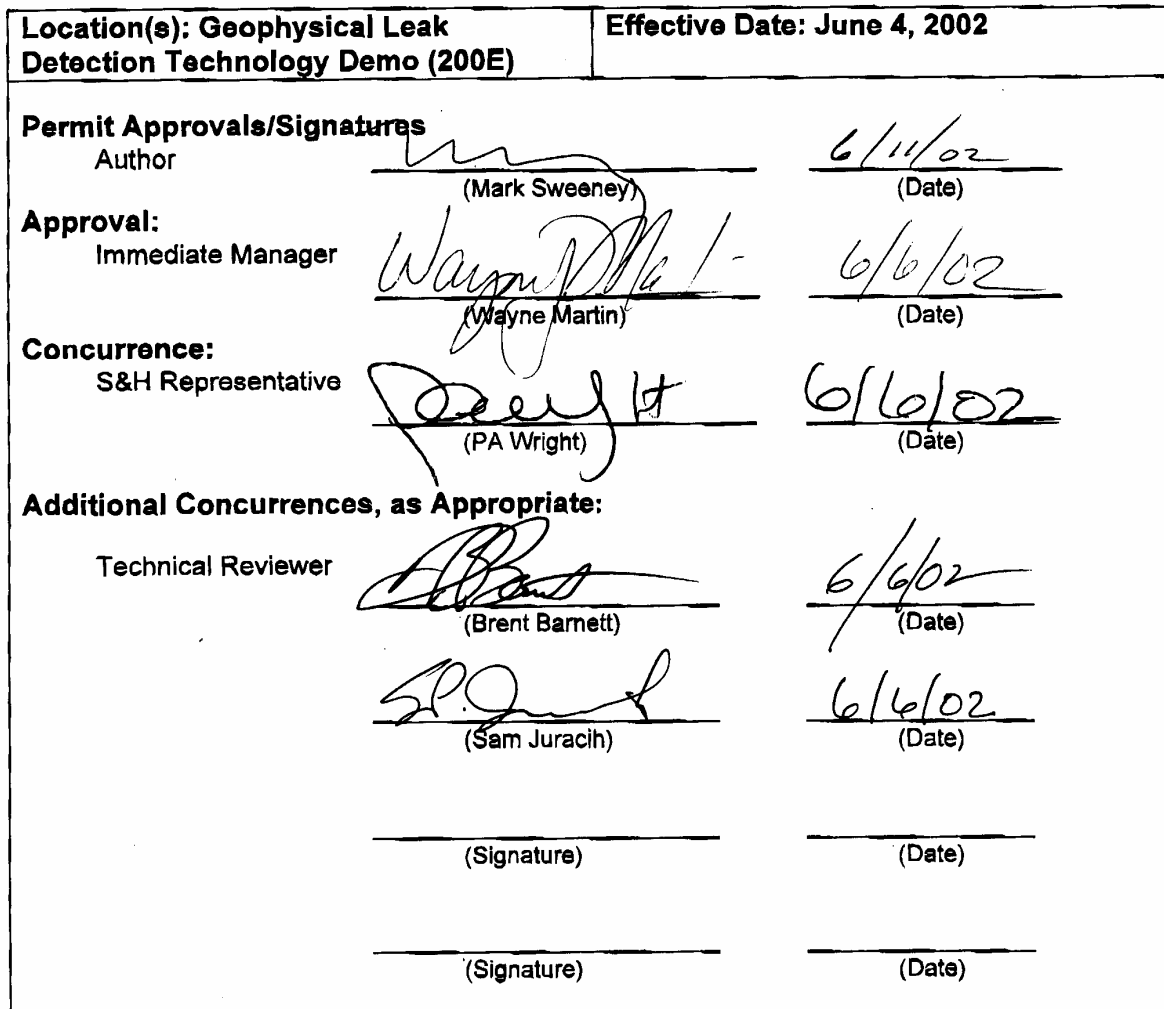 Location(s): Geophysical Leak
Detection Technology Demo (200E)
Effective Date: June 4, 2002
Permit Approvals/Signatures
Author
6/11/02
(Mark Sweeney)
(Date)
Approval:
Immediate Manager
Wayne
6/6/02
(Wayne Martin)
(Date)
Concurrence:
S&H Representative
6/6/02
(PA Wright)
(Date)
Additional Concurrences, as Appropriate:
Technical Reviewer
6/6/02
(Brent Barnett)
(Date)
6/6/02
(Sam Juracih)
(Date)
(Signature)
(Date)
(Signature)
(Date)